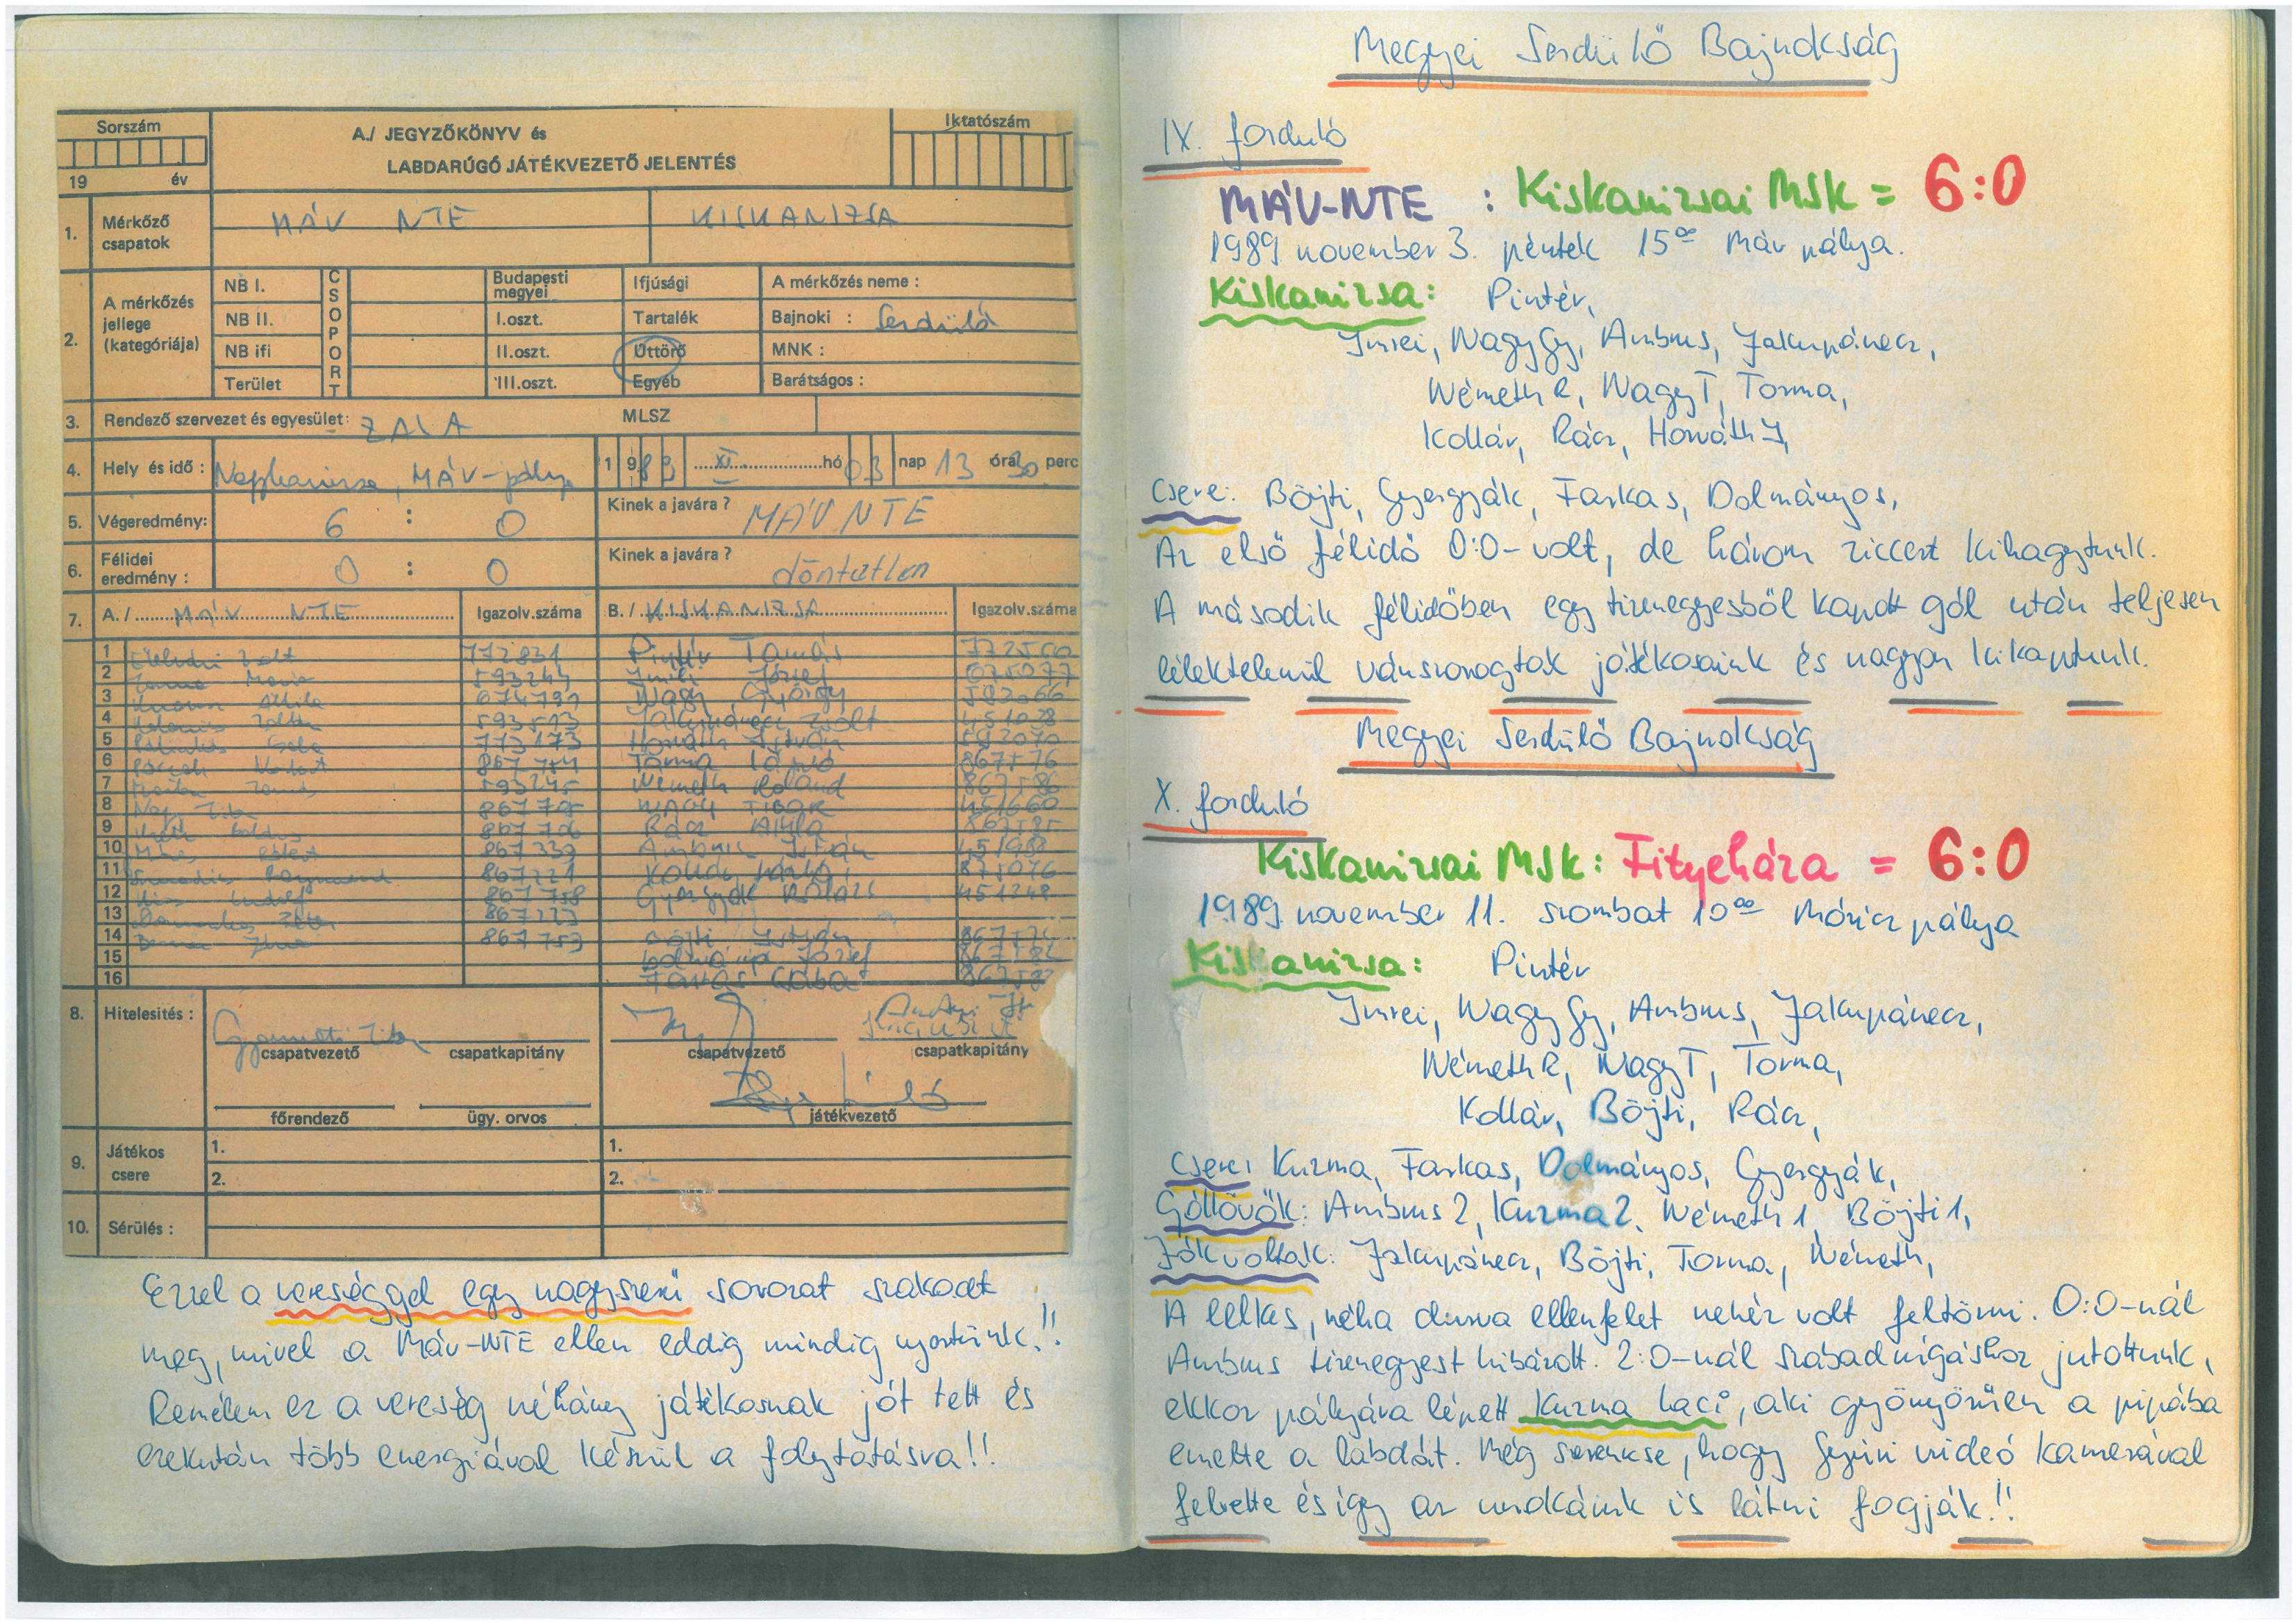 Sorszám
19 év
A./ JEGYZŐKÖNYV és
LABDARÚGÓ JÁTÉKVEZETŐ JELENTÉS
Iktatószám
1. Mérkőző csapatok MÁV NTE KISKANIZSA
2. A mérkőzés jellege (kategóriája)
NB I.
NB II.
NB ifi
Terület
CSOPORT
Budapesti megyei
I.oszt.
II.oszt.
III.oszt.
Ifjúsági
Tartalék
Úttörő
Egyéb
A mérkőzés neme :
Bajnoki : Serdülő
MNK :
Barátságos :
3. Rendező szervezet és egyesület: ZALA MLSZ
4. Hely és idő : Nagykanizsa, MÁV-pálya 1989 XI hó 03 nap 13 óra 30 perc
5. Végeredmény: 6 : 0 Kinek a javára ? MÁV NTE
6. Félidei eredmény : 0 : 0 Kinek a javára ? döntetlen
7. A./ MÁV NTE Igazolv.száma B./ KISKANIZSA Igazolv.száma
1 Zsolt 772831 Pintér Tamás
2 593244 Imrei József 675077
3 Attila 674789 Nagy György
4 Zoltán 593593 Jakupánecz Zsolt 451028
5 773173 Horváth István 592070
6 867784 Torma László 867576
7 593245 Németh Roland 867586
8 867785 NAGY TIBOR 451660
9 867786 Rácz Attila 867585
10 867339 Ambrus István 451988
11 867221 Kollár 875076
12 867758 Gyergyák Balázs 451248
13 867223
14 867753 Böjti István
15 Dolmányos József
16 Farkas Csaba
8. Hitelesités :
csapatvezető csapatkapitány csapatvezető csapatkapitány
főrendező ügy. orvos játékvezető
9. Játékos csere 1. 1.
2. 2.
10. Sérülés :
Ezzel a vereséggel egy nagyszerű sorozat szakadt
meg, mivel a Máv-NTE ellen eddig mindig nyertünk!!
Remélem ez a vereség néhány játékosnak jót tett és
ezekután több energiával készül a folytatásra!!
Megyei Serdülő Bajnokság
IX. forduló
MÁV-NTE : Kiskanizsai MSK = 6:0
1989 november 3. péntek 15⁰⁰ Máv pálya.
Kiskanizsa: Pintér,
Imrei, Nagy Gy, Ambrus, Jakupánecz,
Németh R, Nagy T, Torma,
Kollár, Rácz, Horváth I,
Csere: Böjti, Gyergyák, Farkas, Dolmányos,
Az első félidő 0:0-volt, de három ziccert kihagytunk.
A második félidőben egy tizenegyesből kapott gól után teljesen
lélektelenül vánszorogtak játékosaink és nagyon kikaptunk.
Megyei Serdülő Bajnokság
X. forduló
Kiskanizsai MSK: Fityeháza = 6:0
1989 november 11. szombat 10⁰⁰ Móricz pálya
Kiskanizsa: Pintér
Imrei, Nagy Gy, Ambrus, Jakupánecz,
Németh R, Nagy T, Torma,
Kollár, Böjti, Rácz,
Csere: Kuzma, Farkas, Dolmányos, Gyergyák,
Góllövők: Ambrus 2, Kuzma 2, Németh 1, Böjti 1,
Jók voltak: Jakupánecz, Böjti, Torma, Németh,
A lelkes, néha durva ellenfelet nehéz volt feltörni. 0:0-nál
Ambrus tizenegyest hibázott. 2:0-nál szabadrúgáshoz jutottunk,
ekkor pályára lépett Kuzma Laci, aki gyönyörűen a pipába
emelte a labdát. Még szerencse, hogy Gyuri videó kamerával
felvette és így az unokáink is látni fogják!!